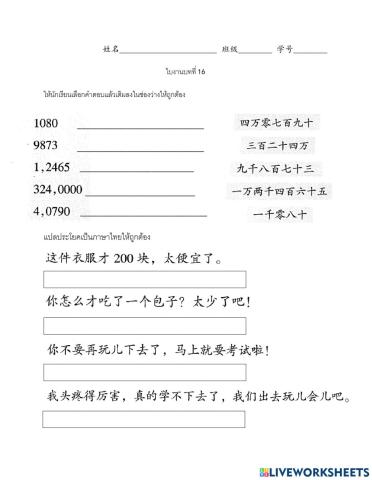 姓名____________________ 班级_______ 学号_______
ใบงานบทที่ 16
ให้นักเรียนเลือกคำตอบแล้วเติมลงในช่องว่างให้ถูกต้อง
1080 ____________________ 四万零七百九十
9873 ____________________ 三百二十四万
1,2465 ____________________ 九千八百七十三
324,0000 ____________________ 一万两千四百六十五
4,0790 ____________________ 一千零八十
แปลประโยคเป็นภาษาไทยให้ถูกต้อง
这件衣服才 200 块，太便宜了。
你怎么才吃了一个包子？太少了吧！
你不要再玩儿下去了，马上就要考试啦！
我头疼得厉害，真的学不下去了，我们出去玩儿会儿吧。
LIVEWORKSHEETS